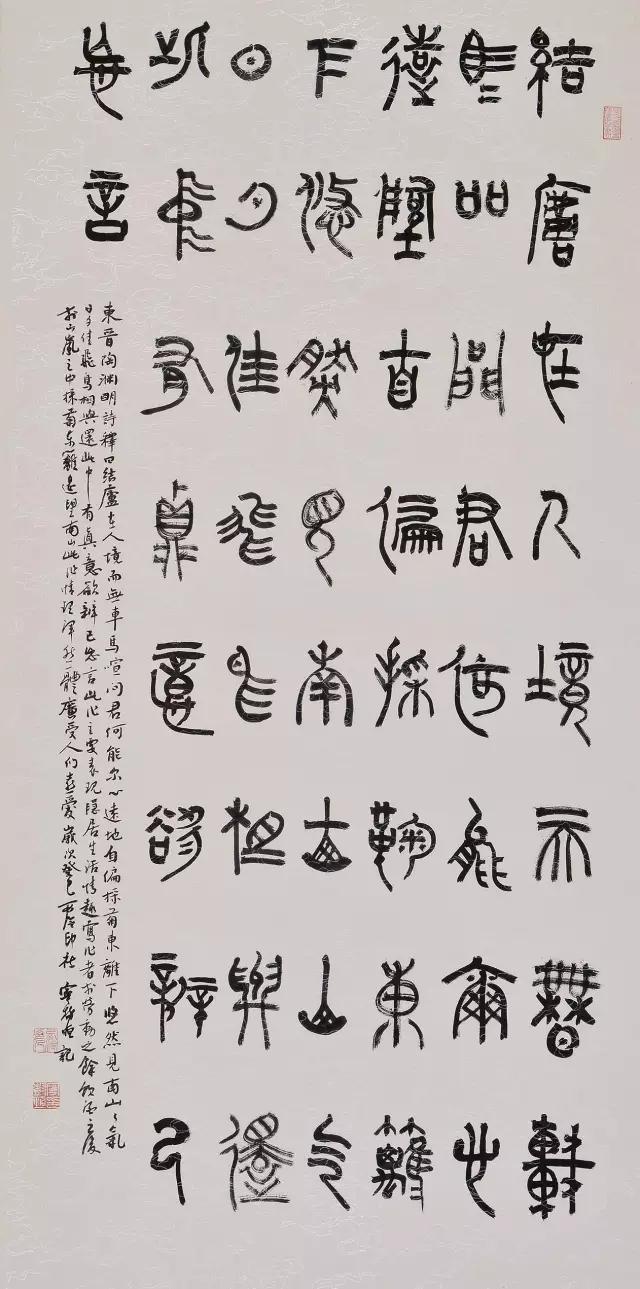 結廬在人境而無車
馬吅問君何能爾心
遠墬自偏採鞠東籬
下悠然見南山山气
日夕佳飛鳥相與還
此中有真意欲辭已
忘言
東晉陶淵明詩釋曰結廬在人境而無車馬喧問君何能尔心遠地自偏採菊東籬下悠然見南山々氣
日夕佳飛鳥相與還此中有真意欲辨已忘言此作主要表現隱居生活情趣寫作者於勞動之餘飲酒之後
於山嵐之中採菊東籬遠望南山此作情理渾然一體廣受人們喜愛歲次癸巳西泠印社記